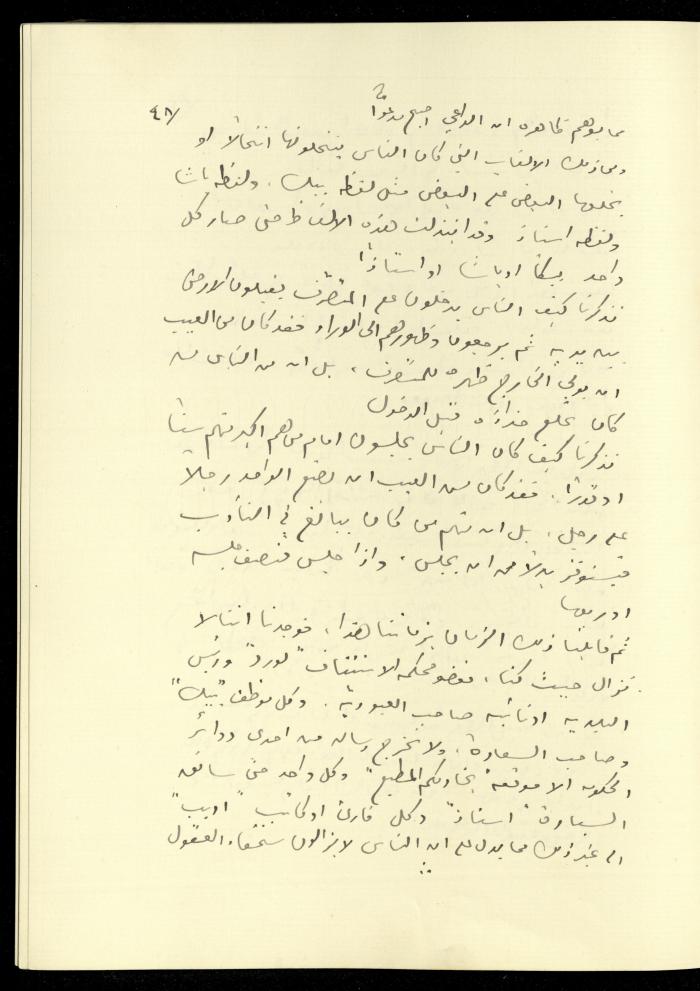 ٤٨/
مما يوهم ظاهره ان الداعي اصبح مدعوا
ومن ذلك الالقاب التي كان الناس ينتحلونها انتحالا او
يخلعها البعض على البعض مثل لفظه بيك. ولفظه باشا
ولفظه استاذ وقد ابتذلت هذه الالفاظ حتى صار كل
واحد بيكا او باشا او استاذا
تذكرنا كيف الناس يدخلون على المتصرف يقبلون الارض
بين يديه ثم يرجعون وظهورهم الى الوراء فقد كان من العيب
ان يولي الخارج ظهره للمتصرف، بل ان من الناس من
كان يخلع حذاءه قبل الدخول
تذكرنا كيف كان الناس يجلسون امام من هم اكبر منهم سنا
او قدرا. فقد كان من العيب ان يضع الواحد رجلا
على رجل، بل ان منهم من كان يبالغ في التأدب
فيستوفز بدلا من ان يجلس، واذا جلس فنصف جلسه
او ربعها
ثم قابلنا ذلك الزمان بزماننا هذا، فوجدنا اننا لا
نزال حيث كنا، فعضو محكمه الاستئناف "لورد" ورئيس
البلديه او نائبه صاحب العبوديه. وكل موظف "بيك"
وصاحب السعادة، ولا تخرج رساله من احدى دوائر
الحكومه الا موقعه "بخادمكم المطيع" وكل واحد حتى سائقه
السيارة "استاذ" وكل قارئ او كاتب "اديب"
الى غير ذلك مما يدل على ان الناس لا يزالون سخفاء العقول